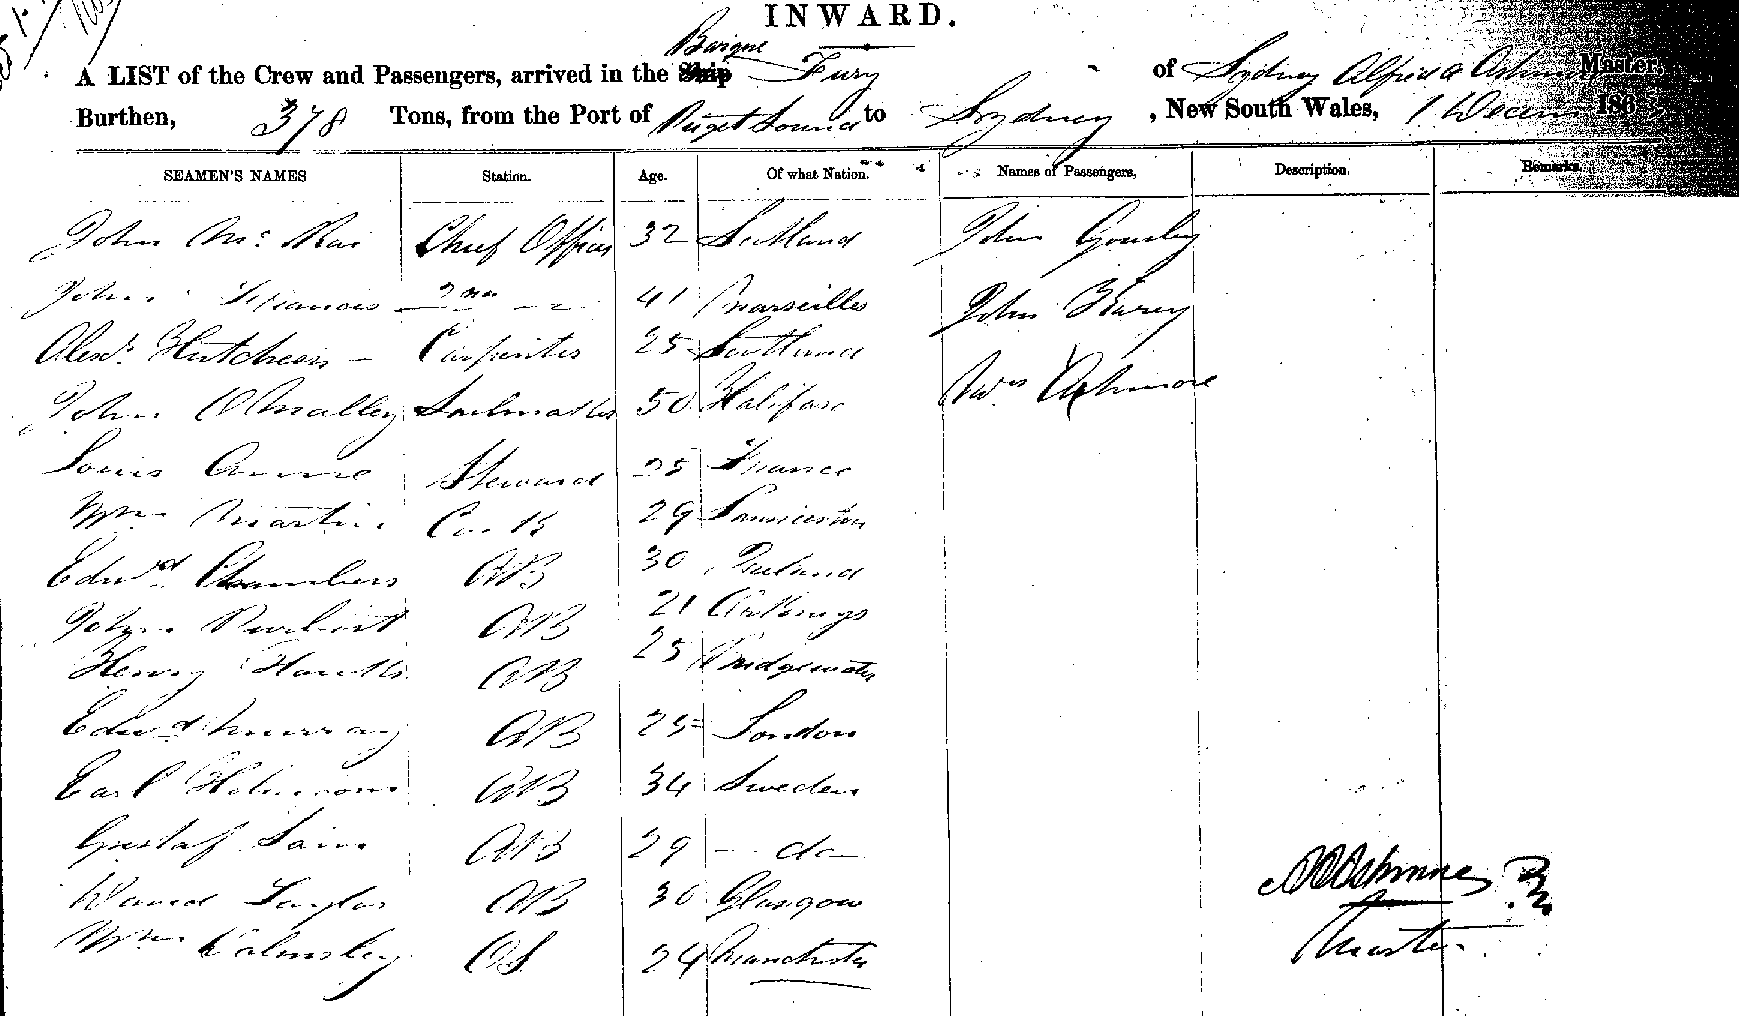 INWARD.
Barque
A LIST of the Crew and Passengers, arrived in the Ship Fury of Sydney Alfred A Ashmore Master,
Burthen, 378 Tons, from the Port of Puget Sound to Sydney, New South Wales, 1 Decem 186
SEAMEN'S NAMES Station. Age. Of what Nation. Names of Passengers, Description. Remarks.
John Mc Rae Chief Officer 32 Scotland John Gourley
John Francois 2nd — 41 Marseilles John
Alexr. Hutcheson — Carpenter 25 Scotland
John O'Malley Sailmaker 50 Halifax Mrs Ashmore
Louis Steward 25 France
Wm Martin Cook 29 Launceston
Edwd Chambers AB 30 Ireland
John AB 21
Henry AB 25 Bridgewater
Edwd Murray AB 25 London
Earl AB 34 Sweden
Gustaf AB 29 — do —
David Taylor AB 30 Glasgow
Wm Walmsley OS 24 Manchester
AAAshmore
Master